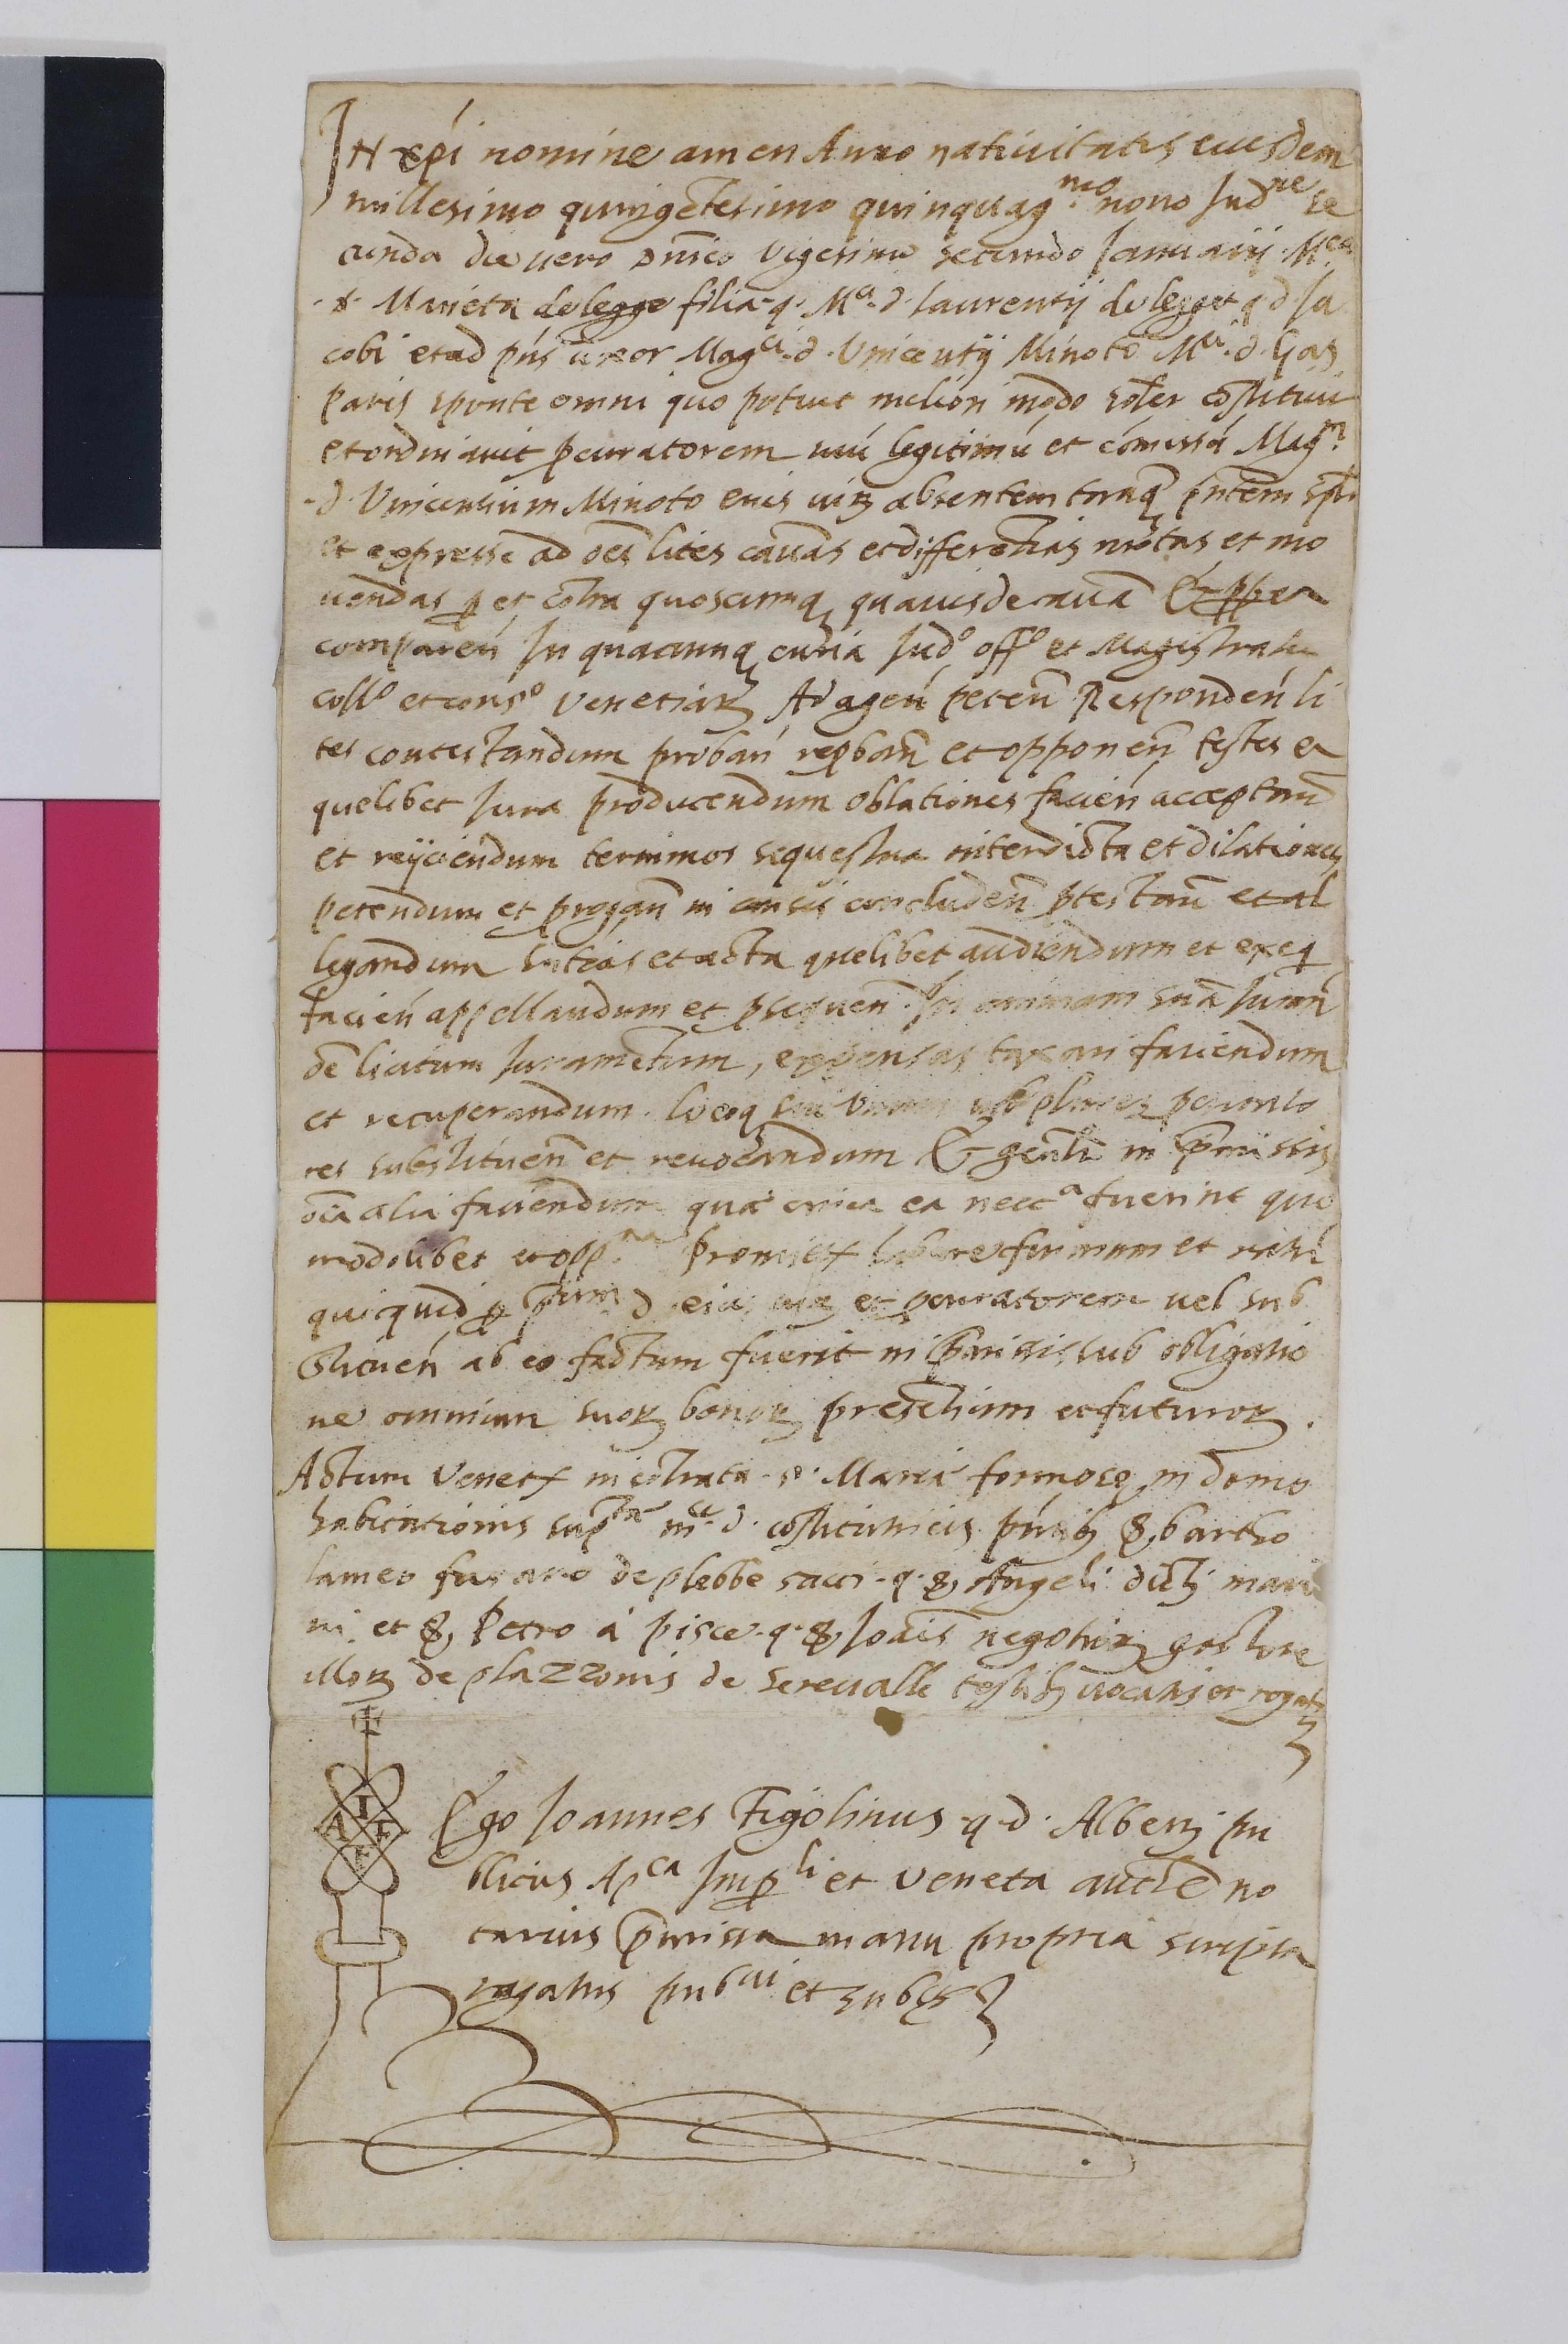 IN xpi nomine amen Anno nativitatis eiusdem
millesimo quingētesimo quinquag.mo nono Ind.ne se
cunda die vero dnīco vigesimo secundo Januarij M.ca
d. Marieta de legge filia q. M.ci d. laurentij de legge q d. Ja
cobi et ad pńs uxor Mag.ci d. Vincentij Minoto M.ci d. Gas
paris sponte omni quo potuit meliori modo solr costituit
et ordinavit pcuratorem suū legitimū et cōmissū Mag.m
d. Vincentium Minoto eius virz absentem tanq̄ pńtem splr
et expresse ad oēs lites causas et differētias motas et mo
vendas p et cōtra quoscunq quavis de causa Et ppea
compareń In quacunq curia Iud.o off.o et Magistratu
coll.o et cons.o Venetiarz Ad ageń peteń Respondeń li
tes contestandum probań repbań et opponeń testes et
quelibet Iura producendum oblationes facień acceptań
et reijciendum terminos sequestra interdicta et dilationes
petendum et progań in causis concludeń ptestań et al
legandum sntīas et acta quelibet audiendum et exeq
facień appellandum et psequeń. In animam suā Iurań
de licitum Iuramētum, expensas taxari faciendum
et recuperandum. locoq sui unum plures pcurato
res substitueń et revocandum Et gēnlr in pmissis
oīa alia faciendum que circa ea necc.a fuerint quo
modolibet et opp.na Promittens habere firmum et ratū
quicquid p ptum d. eius virz et pcuratorem vel sub
stitueń ab eo factum fuerit in pmissis, sub obligatio
ne omnium suorz bonorz presētium et futurorz.
Actum Venet in cōtrata s. Marie formose in domo
habitationis sup.te m.ce d. costituentis pntib s. bartho
lameo fusaro de plebbe sacci q. s. Angeli dicti mari
ni et s. Petro à pisce q. s. Joāis negotiorz gestore
illorz de plazzonis de Serevalle testib vocatis et rogatis
I
A F
Ego Joannes Figolinus q. d. Alberti pu
blicus Ap.ca Imp.li et Veneta aucte no
tarius pmissa manu propria scripta
rogatus pub.cui et subss